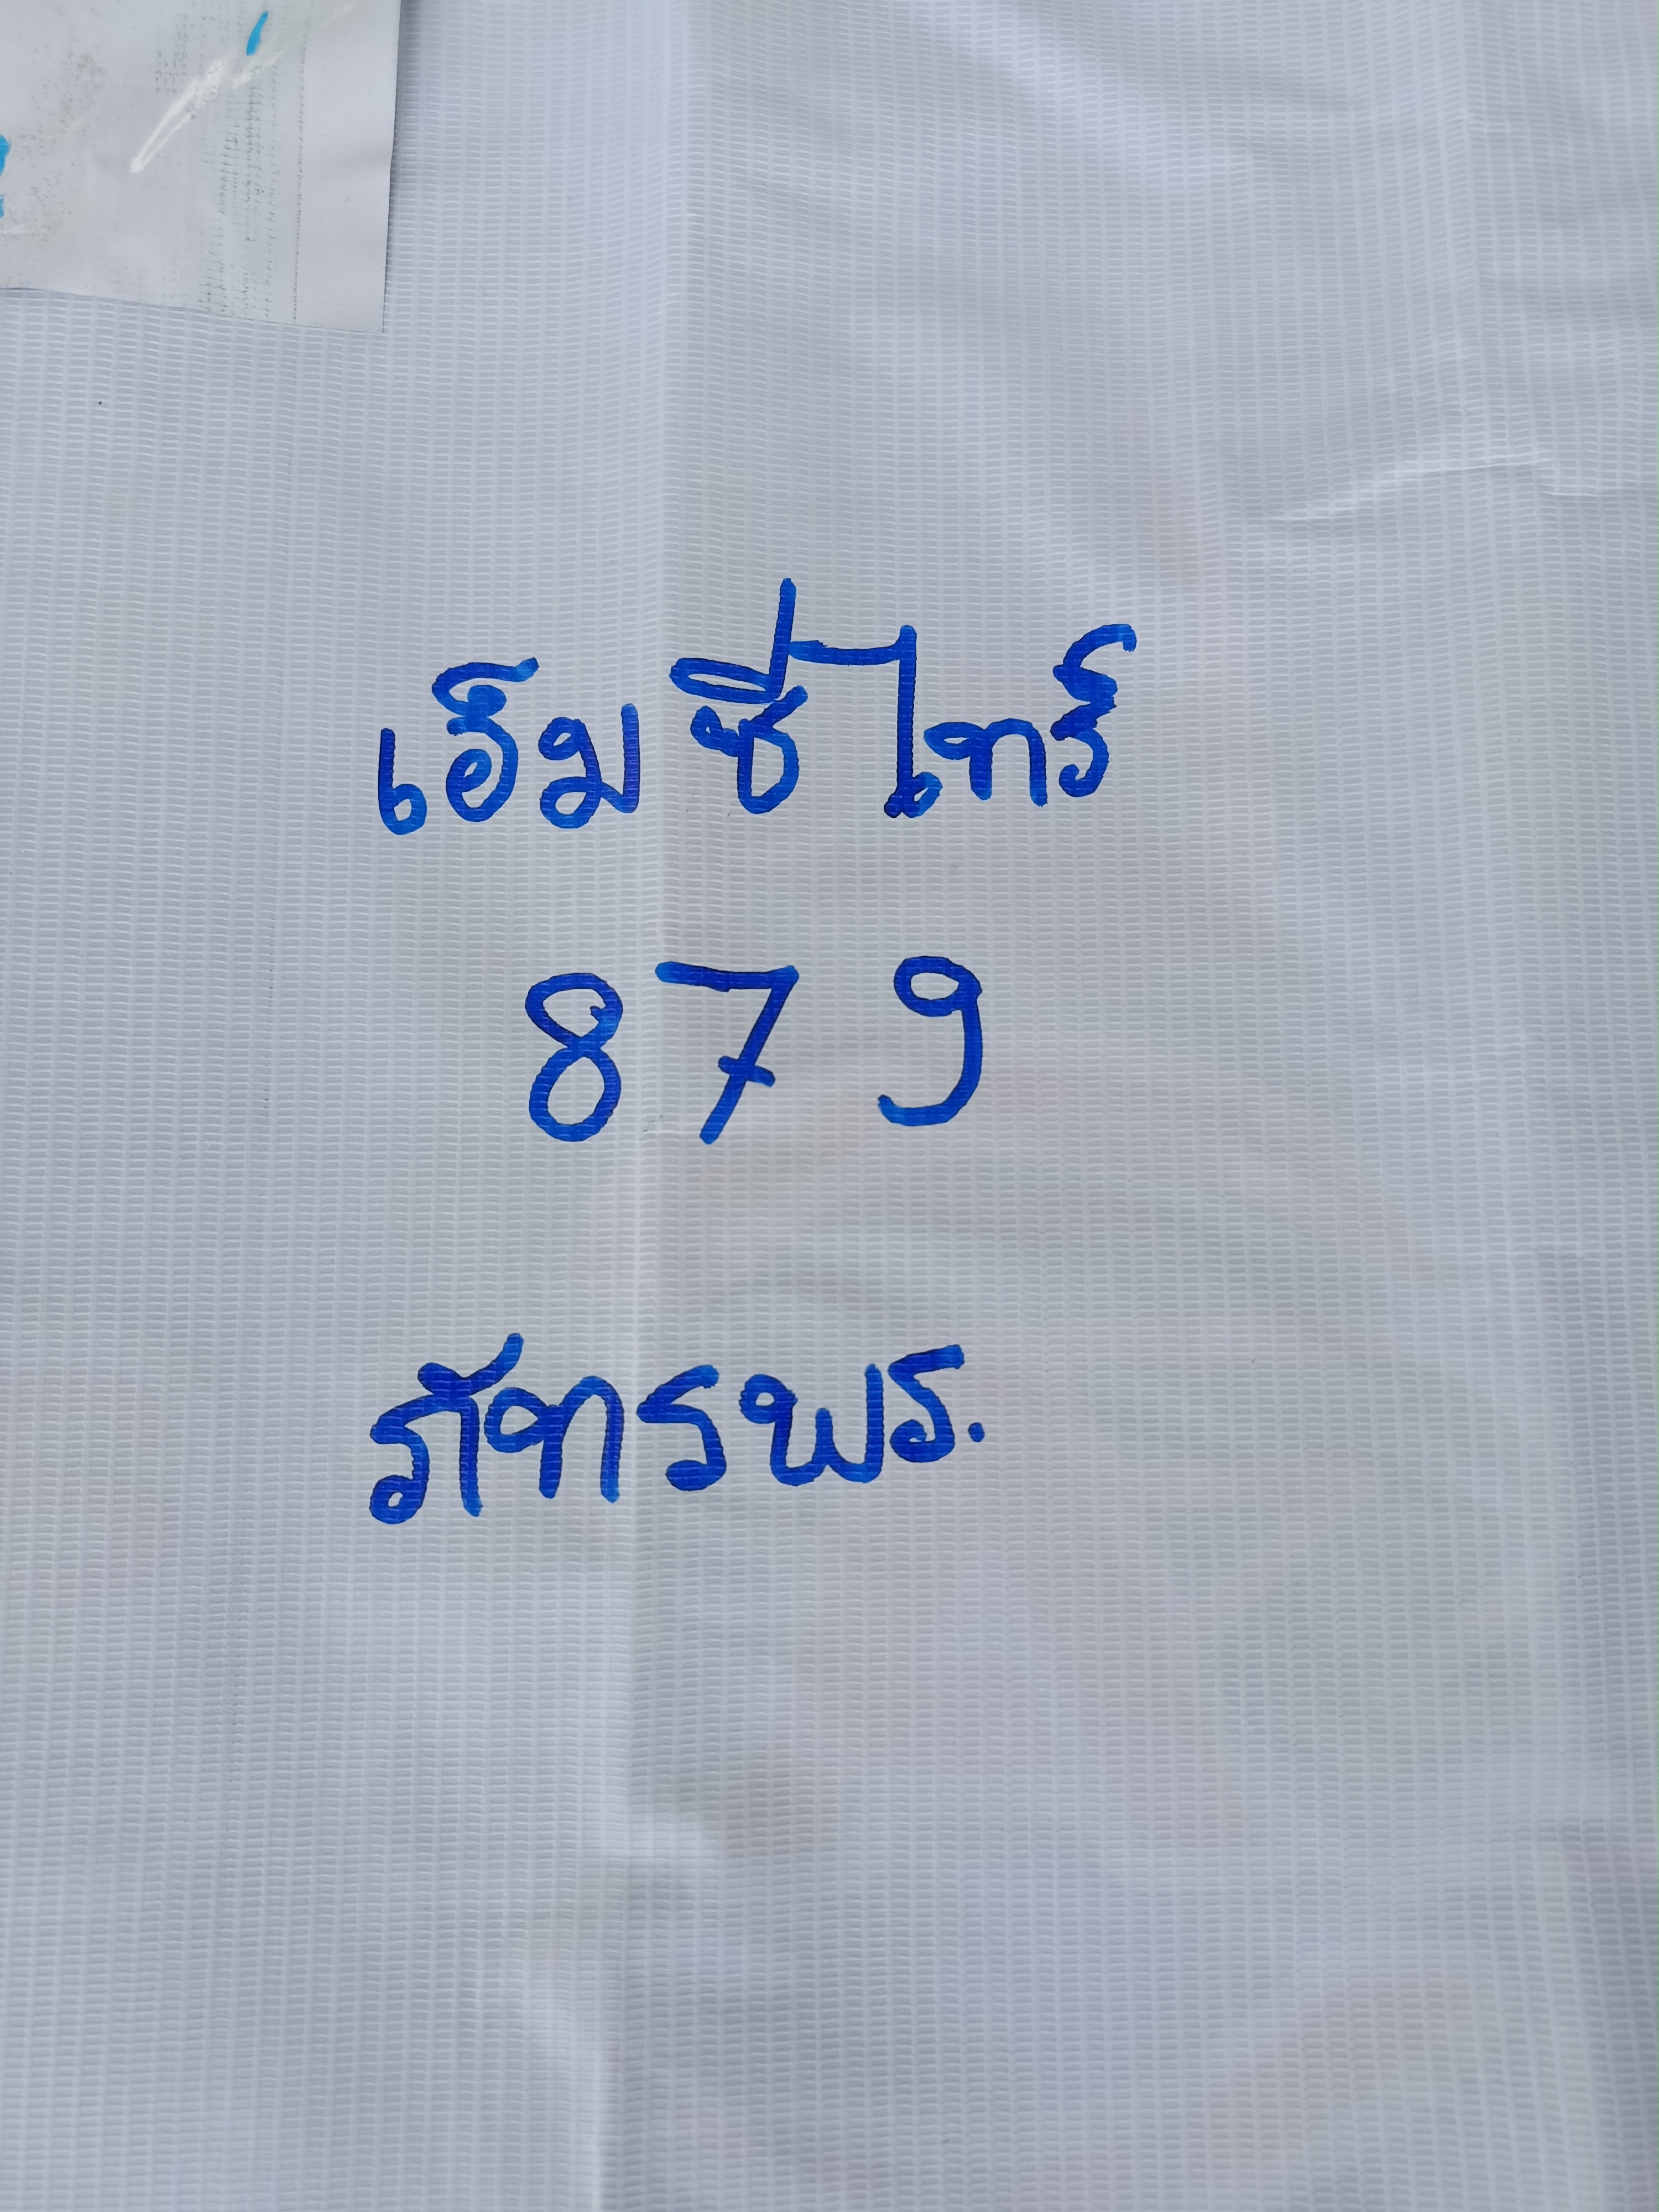 เอ็มซีไทร์
879
ภัทรพร.